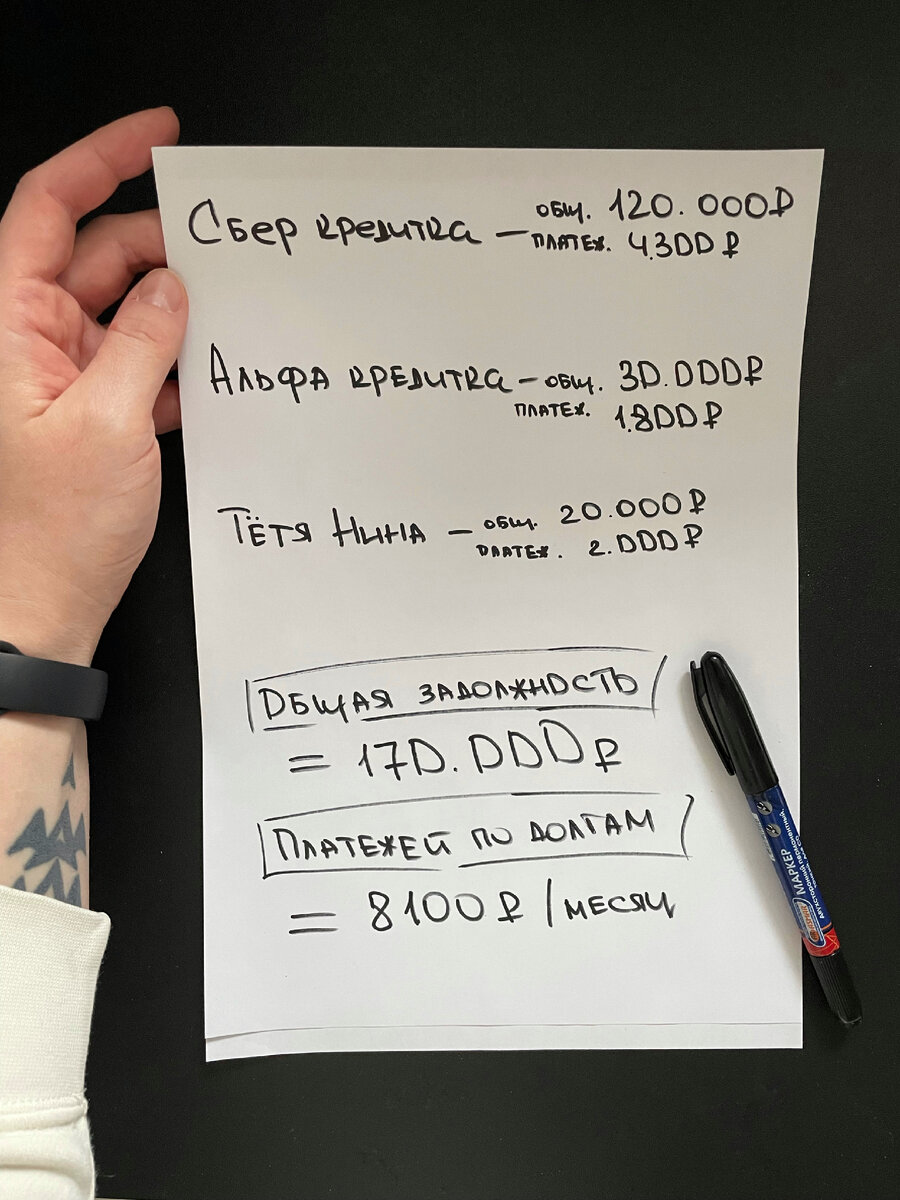 Сбер кредитка – общ. 120.000₽
платеж. 4.300₽
Альфа кредитка – общ. 30.000₽
платеж. 1.800₽
Тётя Нина – общ. 20.000₽
платеж. 2.000₽
Общая задолжность
= 170.000₽
Платежей по долгам
= 8100₽/месяц
МАРКЕР